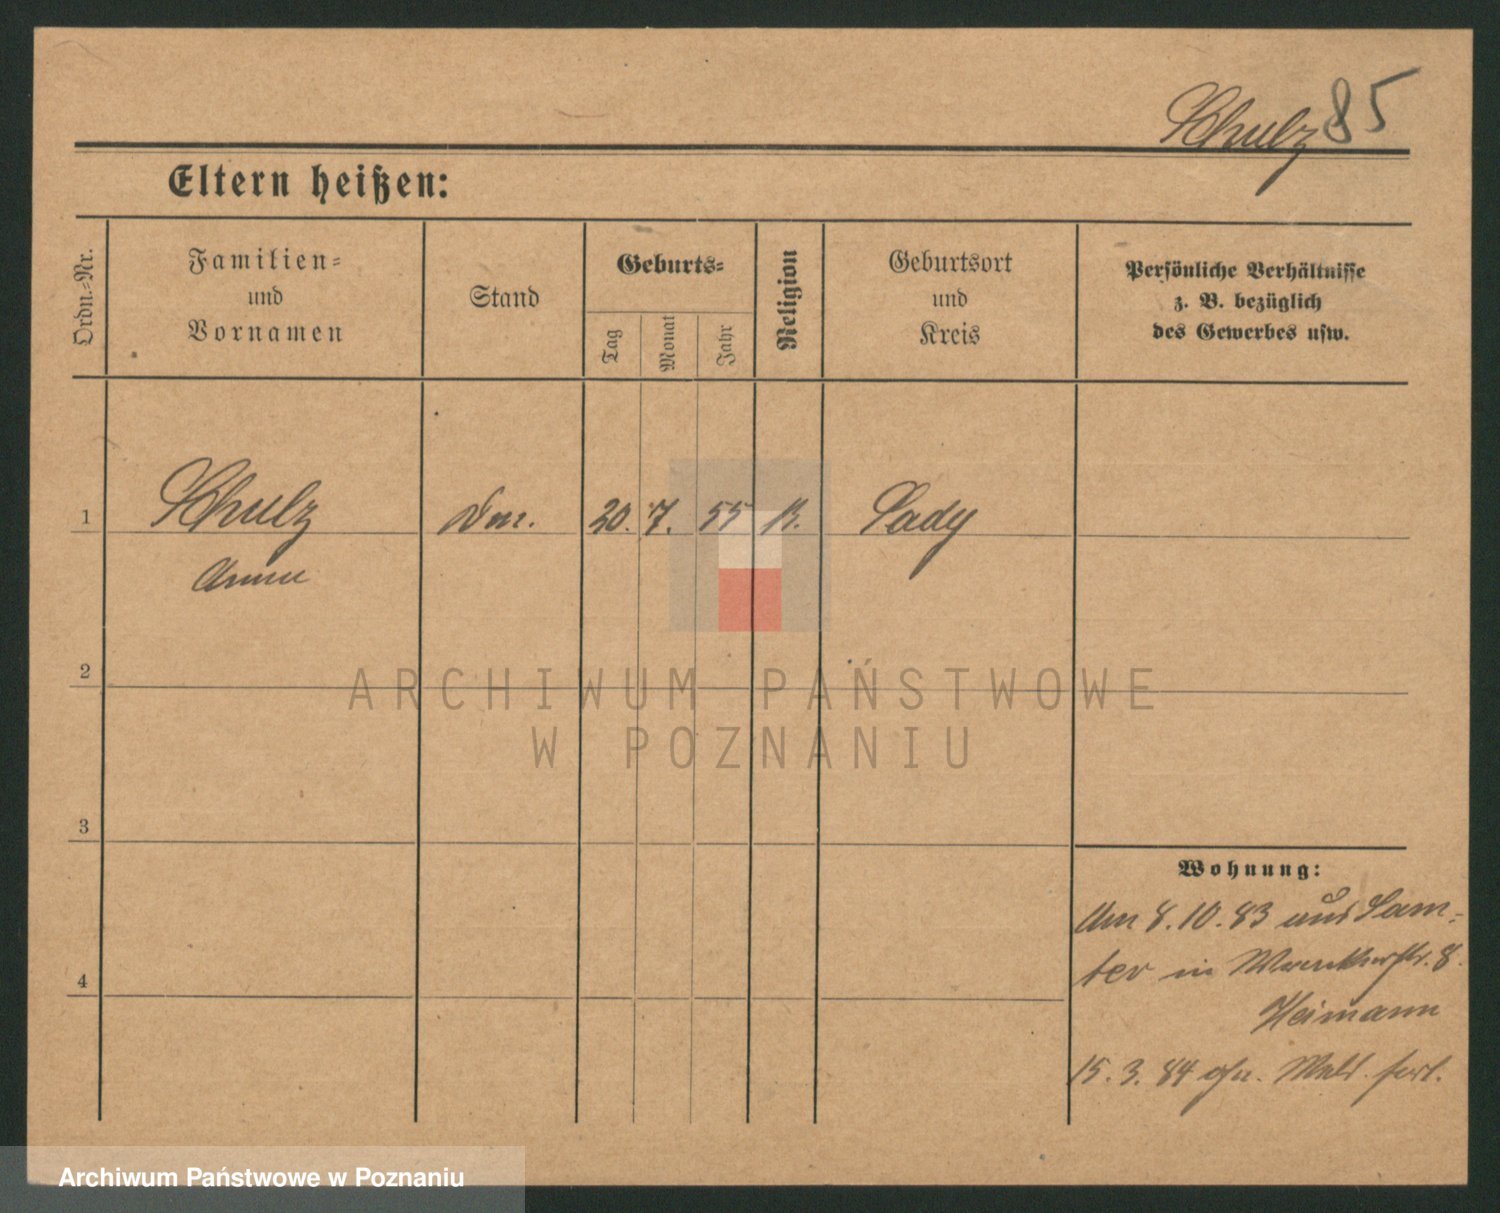 Schulz 85
Eltern heißen:
Ordn.-Nr.
Familien-
und
Vornamen
Stand
Geburts-
Tag
Monat
Jahr
Religion
Geburtsort
und
Kreis
Persönliche Verhältnisse
z. B. bezüglich
des Gewerbes usw.
1
Schulz
20. 7. 55 K.
Anna
2
ARCHIWUM PAŃSTWOWE
W POZNANIU
3
Wohnung:
Am 8.10.83 aus Sam-
ter in 8.
4
Heimann
15.3.84 ohn. Meld. fort.
Archiwum Państwowe w Poznaniu